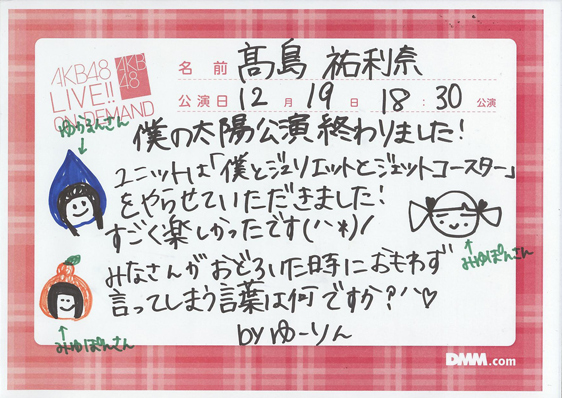 AKB48
LIVE!!
ON DEMAND
AKB
48
名前 髙島 祐利奈
公演日 12月19日 18:30公演
ゆうまんさん
僕の太陽公演終わりました!
ユニットは「僕とジュリエットとジェットコースター」
をやらせていただきました!
すごく楽しかったです(^*)/
みゆぽんさん
みなさんがおどろいた時におもわず
言ってしまう言葉は何ですか?^♡
みゆぽんさん
by ゆーりん
DMM.com